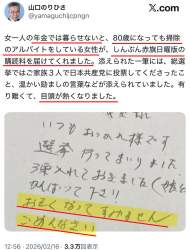 山口のりひさ
@yamaguchijcpngn
女一人の年金では暮らせないと、80歳になっても掃除
のアルバイトをしている女性が、しんぶん赤旗日曜版の
購読料を届けてくれました。添えられた一筆には、総選
挙ではご家族3人で日本共産党に投票してくださったこ
と、温かい励ましの言葉などが添えられていました。有
り難くて、目頭が熱くなりました。
いつも
おつかれ様です
選挙 行ってまいりました
3票入れておきました(娘と
がんばって下さい
おそくなってすみません
ごめんなさい
12:56・2026/02/16・3.3万回表示